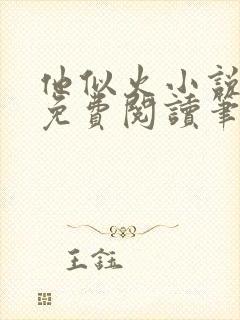 他似火小說
免費閱讀筆
王鈺